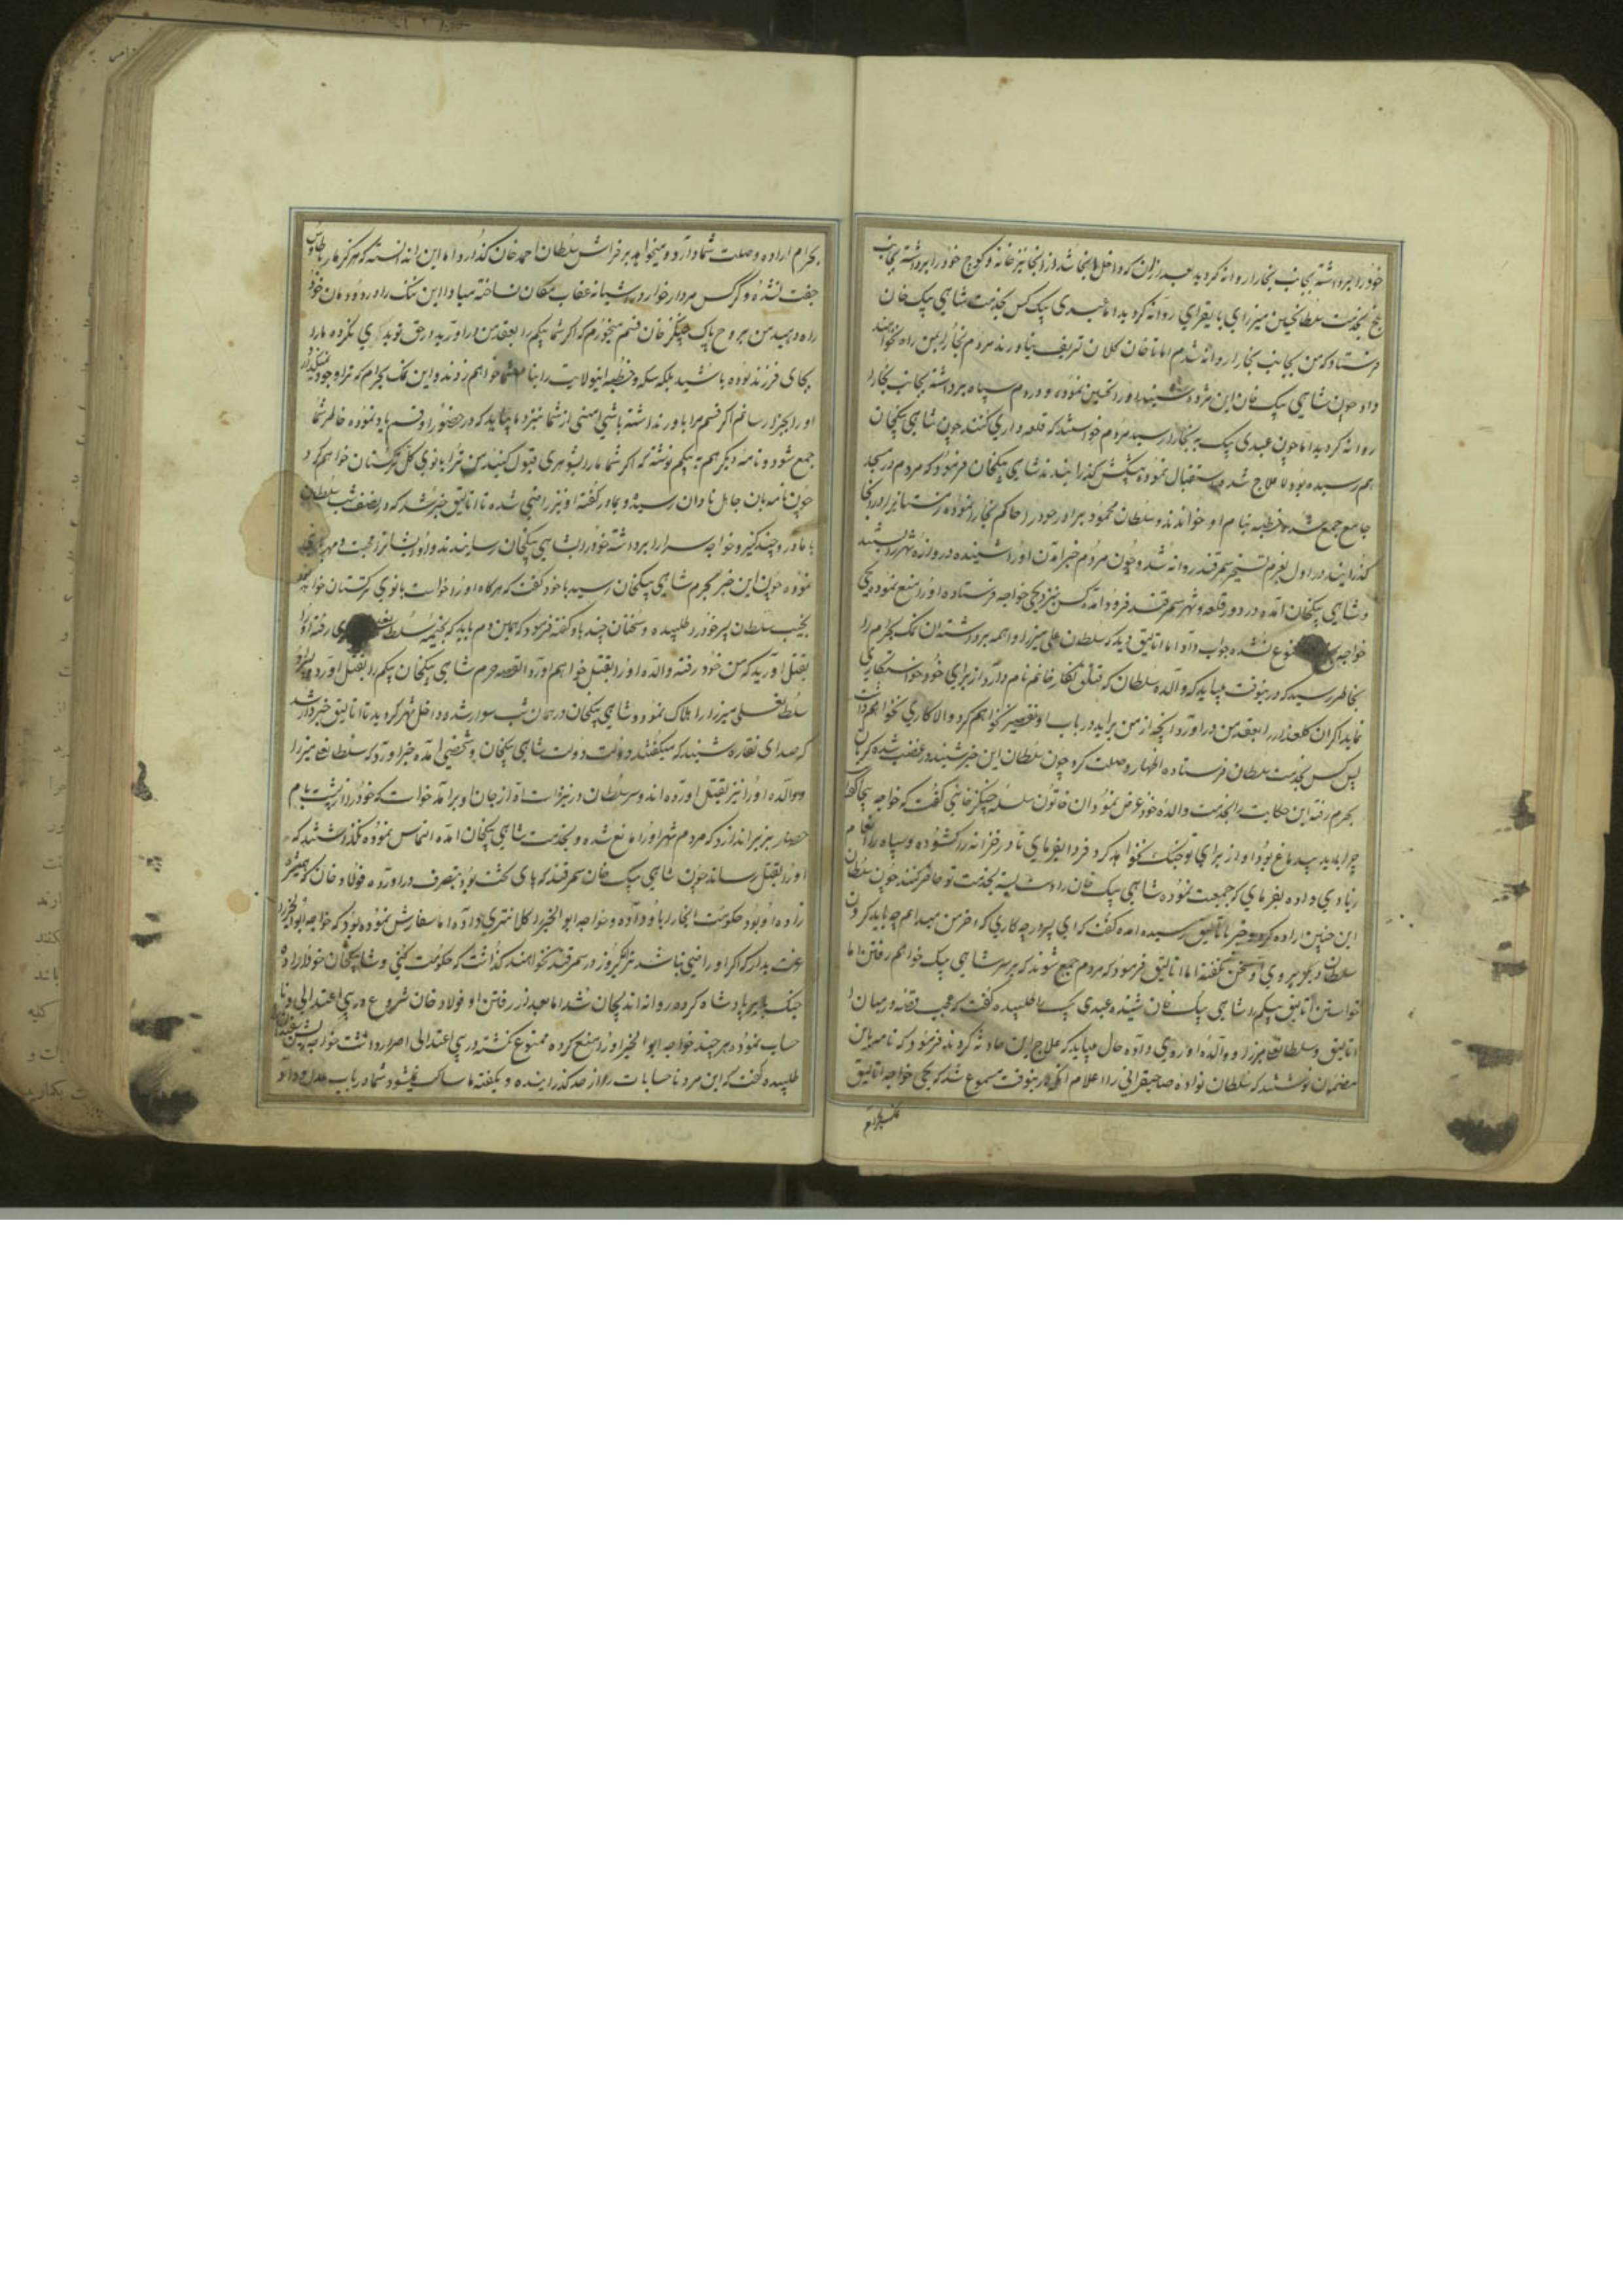 خود را برداشته بجانب بخارا روانه کردید بعد از ان که داخل بخارا شد از انجا نیز خانه و کوچ خود را برداشته بجانب
بلخ بخدمت سلطان حسین میرزای بایقرای روانه کردید اما عبدی بیک کس بخدمت شاهی بیک خان
فرستاد که من بجانب بخارا روانه شدم اما تا خان کلان تشریف نیاورند مردم بخارا بمن راه نخواهند
داد چون شاهی بیک خان این مژده شنید او را تحسین نموده و سپاه برداشته بجانب بخارا
روانه کردید اما چون عبدی بیک به بخارا رسید مردم خواستند که قلعه داری کنند چون شاهی بیکخان
هم رسیده بود لا علاج شده استقبال نموده پیشکش گذرانیدند شاهی بیکخان فرمود که مردم در مسجد
جامع جمع شده خطبه بنام او خواندند و سلطان محمود برادر خود را حاکم بخارا نموده
گذرانید در اول بعزم تسخیر سمرقند روانه شد و چون مردم خبر آمدن او را شنیده دروازه شهر را بستند
و شاهی بیکخان آمده در دور قلعه و شهر سمرقند فرود آمد کس بنزد یحی خواجه فرستاده او را منع نمود یحی
خواجه ممنوع نشده جواب داد اما اتالیق دید که سلطان علی میرزا واهمه برداشته ان نمک بحرام را
بخاطر رسید که درینوقت میباید که والده سلطان که قتلق نکار خانم نام دارد از برای خود خواستکاری
نماید اگر ان کلعذار را بعقد من در آورد آنچه از من براید در باب او تقصیر نخواهم کرد و الا کاری نخواهم داشت
پس کس بخدمت سلطان فرستاده اظهار وصلت کرد چون سلطان این خبر شنید در غضب شده کریان
بحرم رفته این حکایت را بخدمت والده خود عرض نمود ان خاتون سلسله چنکیز خانی گفت که خواجه بیجا گفته
چرا باید بیدماغ بود او از برای تو جنک نخواهد کرد فردا بفرمای تا در خزانه را کشوده و سپاه را انعام
زیادی داده بفرمای که جمعیت نموده شاهی بیک خان را دست بسته بخدمت تو حاضر کنند چون سلطان
این چنین اراده کرد خبر باتالیق رسیده آمده گفت که ای پسر چه کاری که آخر من میدانم چه باید کردن
سلطان دیگر بروی او سخن نگفته اما اتالیق فرمود که مردم جمع شوند که بر سر شاهی بیک خواهم رفتن اما
خواستن اتالیق بیکم را شاهی بیک خان شنیده عبدی بیک را طلبیده گفت که عجب قضیه در میان
اتالیق و سلطان علی میرزا و والده او روی داده حال میباید که علاج این حادثه کرد پس فرمود که نامه باین
مضمون نوشتند که سلطان نواده صاحبقرانی را اعلام انکه درینوقت مسموع شد که یحی خواجه اتالیق
نمک بحرام
بحرام اراده وصلت شما دارد و میخواهد بر فراش سلطان احمد خان گذارد اما این ندانسته که هرگز مار با طاوس
جفت نشده و گرگس مردار خوار در آشیانه عقاب مکان نساخته مبادا این ننک را در دودمان خود
راه دهید من بروح پاک چنکیز خان قسم میخورم که اگر شما بیکم را بعقد من در آورید در حق تو بدی نکرده ما را
بجای فرزند بوده باشید بلکه سکه و خطبه اینولایت را بنام شما خواهم زد و این نمک بحرام که ترا وجود نمیکذارد
او را بجزا رسانم اگر قسم مرا باور نداشته باشی امینی از شما بنزد ما بیاید که در حضور او قسم یاد نموده خاطر شما
جمع شود و نامه دیگر هم به بیکم نوشته که اگر شما ما را بشوهری قبول کنید من ترا بانوی کل ترکستان خواهم کرد
چون نامه بان جاهل نادان رسید و بمادر گفته او نیز راضی شده تا اتالیق خبر شد که در نصف شب سلطان
با مادر و چند کنیز و خواجه سرا را برداشته خود را بشاهی بیکخان رسانیدند و او ایشان را محبت و مهربانی
نموده چون این خبر بحرم شاهی بیکخان رسید با خود گفت که هرگاه او زن خواست بانوی ترکستان خواهد شد
نجیب سلطان پسر خود را طلبیده و سخنان چند باو گفته فرمود که همین دم باید که بخیمه سلطان علی رفته او را
بقتل آورید که من خود رفته والده او را بقتل خواهم آورد القصه حرم شاهی بیکخان بیکم را بقتل آورد و پسر او
سلطان علی میرزا را هلاک نمود و شاهی بیکخان در همان شب سوار شده داخل شهر کردید تا اتالیق خبردار شد
که صدای نقاره شنید که میگفتند دولت دولت شاهی بیکخان و شخصی آمده خبر آورد که سلطان علی میرزا
و والده او را نیز بقتل آورده اند و سر سلطان در نیزه است آه از جان او برآمد خواست که خود را از پشت بام
حصار بزیر اندازد که مردم شهر او را مانع شده و بخدمت شاهی بیکخان آمده التماس نموده نکذاشتند که
او را بقتل رساند چون شاهی بیک خان سمرقند که پای تخت بود بتصرف در آورده فولاد خان که همشیره
زاده او بود حکومت انجا را باو داده و خواجه ابو الخیر را کلانتری داده اما سفارش نموده بود که خواجه ابوالخیر را
عزت بدار که اگر او راضی نباشد ترا یکروز در سمرقند نخواهند گذاشت که حکومت کنی و شاهی بیکخان خود اراده
جنک با پادشاه کرده روانه اندیجان شد اما بعد از رفتن او فولاد خان شروع در بی اعتدالی و نا
حساب نموده هر چند خواجه ابو الخیر او را منع کرده ممنوع نگشته در بی اعتدالی اصرار داشت خواجه
طلبیده گفت که این مرد نا حسابات را از حد گذرانیده و بگفته ما ساکت نمیشود شما در باب